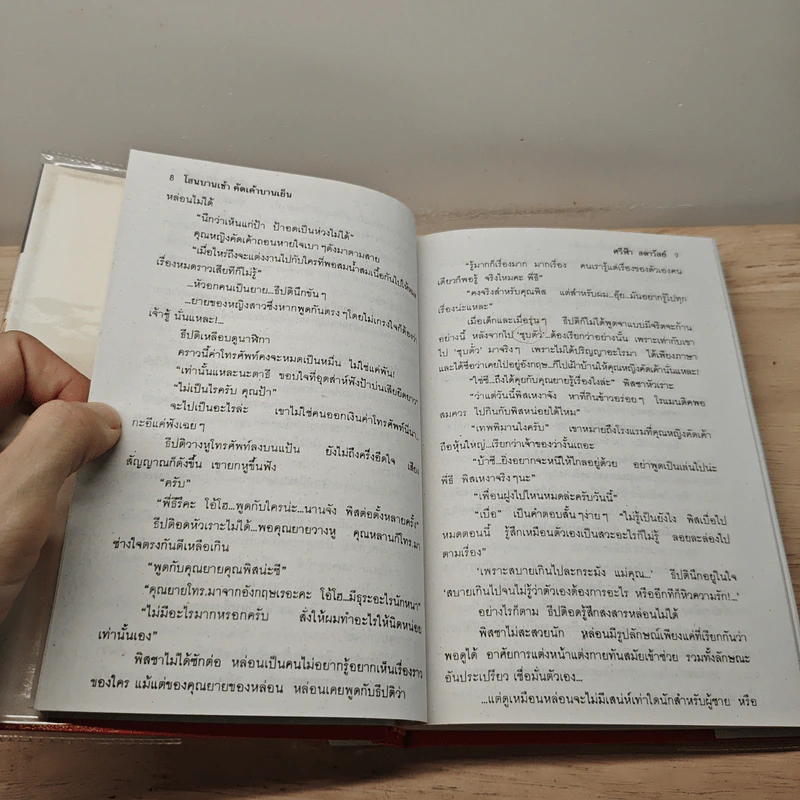 8 โสนบานเช้า คัดเค้าบานเย็น
หล่อนไม่ได้
“นึกว่าเห็นแก่ป้า ป้าอดเป็นห่วงไม่ได้”
คุณหญิงคัดเค้าถอนหายใจเบาๆ ดังมาตามสาย
“เมื่อไหร่ถึงจะแต่งงานไปกับใครที่พอสมน้ำสมเนื้อกันไปให้
เรื่องหมดราวเสียทีก็ไม่รู้”
...หัวอกคนเป็นยาย...ธีปตินึกขันๆ
...ยายของหญิงสาวซึ่งหากพูดกันตรงๆ โดยไม่เกรงใจก็ต้องว่า
เจ้าชู้ นั่นแหละ!...
ธีปติเหลือบดูนาฬิกา
คราวนี้ค่าโทรศัพท์คงจะหมดเป็นหมื่น ไม่ใช่แค่พัน!
“เท่านั้นแหละนะตาธี ขอบใจที่อุตส่าห์ฟังป้าบ่นเสียยืดยาว”
“ไม่เป็นไรครับ คุณป้า”
จะไปเป็นอะไรล่ะ เขาไม่ใช่คนออกเงินค่าโทรศัพท์นี่นา
กะอีแค่ฟังเฉยๆ
ธีปติวางหูโทรศัพท์ลงบนแป้น ยังไม่ถึงครึ่งอึดใจ เสียง
สัญญาณก็ดังขึ้น เขายกหูขึ้นฟัง
“ครับ”
“พี่ธีรึคะ โอ้โฮ...พูดกับใครน่ะ...นานจัง พิสต่อตั้งหลายครั้ง”
ธีปติอดหัวเราะไม่ได้...พอคุณยายวางหู คุณหลานก็โทร.มา
ช่างใจตรงกันดีเหลือเกิน
“พูดกับคุณยายคุณพิสน่ะซี”
“คุณยายโทร.มาจากอังกฤษเรอะคะ โอ้โฮ...มีธุระอะไรนักหนา”
“ไม่มีอะไรมากหรอกครับ สั่งให้ผมทำอะไรให้นิดหน่อย
เท่านั้นเอง”
พิสซาไม่ได้ซักต่อ หล่อนเป็นคนไม่อยากรู้อยากเห็นเรื่องราว
ของใคร แม้แต่ของคุณยายของหล่อน หล่อนเคยพูดกับธีปติว่า
ศรีฟ้า ลดาวัลย์ 9
“รู้มากก็เรื่องมาก มากเรื่อง คนเรารู้แต่เรื่องของตัวเองคน
เดียวก็พอรู้ จริงไหมคะ พี่ธี”
“คงจริงสำหรับคุณพิส แต่สำหรับผม...อุ๊ย...มันอยากรู้ไปทุก
เรื่องน่ะแหละ”
เมื่อเด็กและเมื่อรุ่นๆ ธีปติก็ไม่ได้พูดจาแบบมีจริตจะก้าน
อย่างนี้ หลังจากไป ‘ชุบตัว’...ต้องเรียกว่าอย่างนั้น เพราะเท่ากับเขา
ไป ‘ชุบตั๋ว’ มาจริงๆ เพราะไม่ได้ปริญญาอะไรมา ได้เพียงภาษา
และได้ชื่อว่าเคยไปอยู่อังกฤษ...ก็ไปเฝ้าบ้านให้คุณหญิงคัดเค้านั่นแหละ!
“ใช้ซี...ถึงได้คุยกับคุณยายรู้เรื่องไงล่ะ” พิสซาหัวเราะ
“ว่าแต่วันนี้พิสเหงาจัง หาที่กินข้าวอร่อยๆ โรแมนติคพอ
สมควร ไปกินกับพิสหน่อยได้ไหม”
“เทพพิมานไงครับ” เขาหมายถึงโรงแรมที่คุณหญิงคัดเค้า
ถือหุ้นใหญ่...เรียกว่าเจ้าของว่างั้นเถอะ
“บ้าซี...ยิ่งอยากจะหนีให้ไกลอยู่ด้วย อย่าพูดเป็นเล่นไปน่ะ
พี่ธี พิสเหงาจริงๆ นะ”
“เพื่อนฝูงไปไหนหมดล่ะครับวันนี้”
“เบื่อ” เป็นคำตอบสั้นๆ ง่ายๆ “ไม่รู้เป็นยังไง พิสเบื่อไป
หมดตอนนี้ รู้สึกเหมือนตัวเองเป็นสวะอะไรก็ไม่รู้ ลอยละล่องไป
ตามเรื่อง”
‘เพราะสบายเกินไปละกระมัง แม่คุณ...’ ธีปตินึกอยู่ในใจ
‘สบายเกินไปจนไม่รู้ว่าตัวเองต้องการอะไร หรืออีกทีก็หิวความรัก!...’
อย่างไรก็ตาม ธีปติอดรู้สึกสงสารหล่อนไม่ได้
พิสซาไม่สะสวยนัก หล่อนมีรูปลักษณ์เพียงแค่ที่เรียกกันว่า
พอดูได้ อาศัยการแต่งหน้าแต่งกายทันสมัยเข้าช่วย รวมทั้งลักษณะ
อันประเปรียว เชื่อมั่นตัวเอง...
...แต่ดูเหมือนหล่อนจะไม่มีเสน่ห์เท่าใดนักสำหรับผู้ชาย หรือ